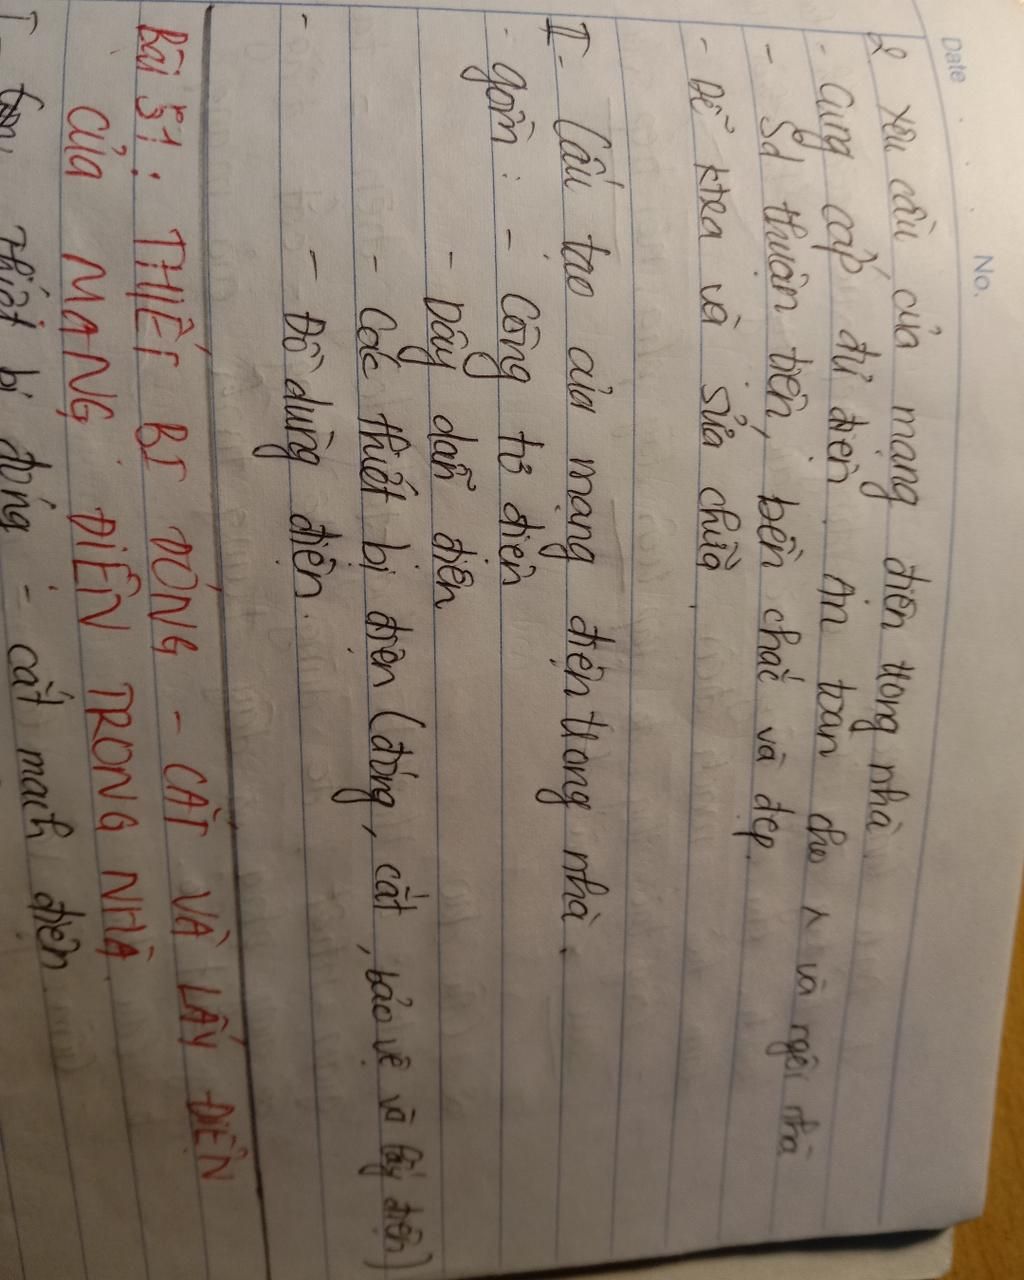 No.
Date
2 yêu cầu của mạng điện trong nhà
- Cung cấp đủ điện. An toàn cho và ngôi nhà
- Sd thuận tiện, bền chắc và đẹp.
- Dễ ktra và sửa chữa.
II- Cấu tạo của mạng điện trong nhà.
- gồm: - Công tơ điện
- Dây dẫn điện
- Các thiết bị điện (đóng, cắt, bảo vệ và lấy điện)
- Đồ dùng điện.
-
Bài 51: THIẾT BỊ ĐÓNG - CẮT VÀ LẤY ĐIỆN
CỦA MẠNG ĐIỆN TRONG NHÀ
thiết bị đóng - cắt mạch điện